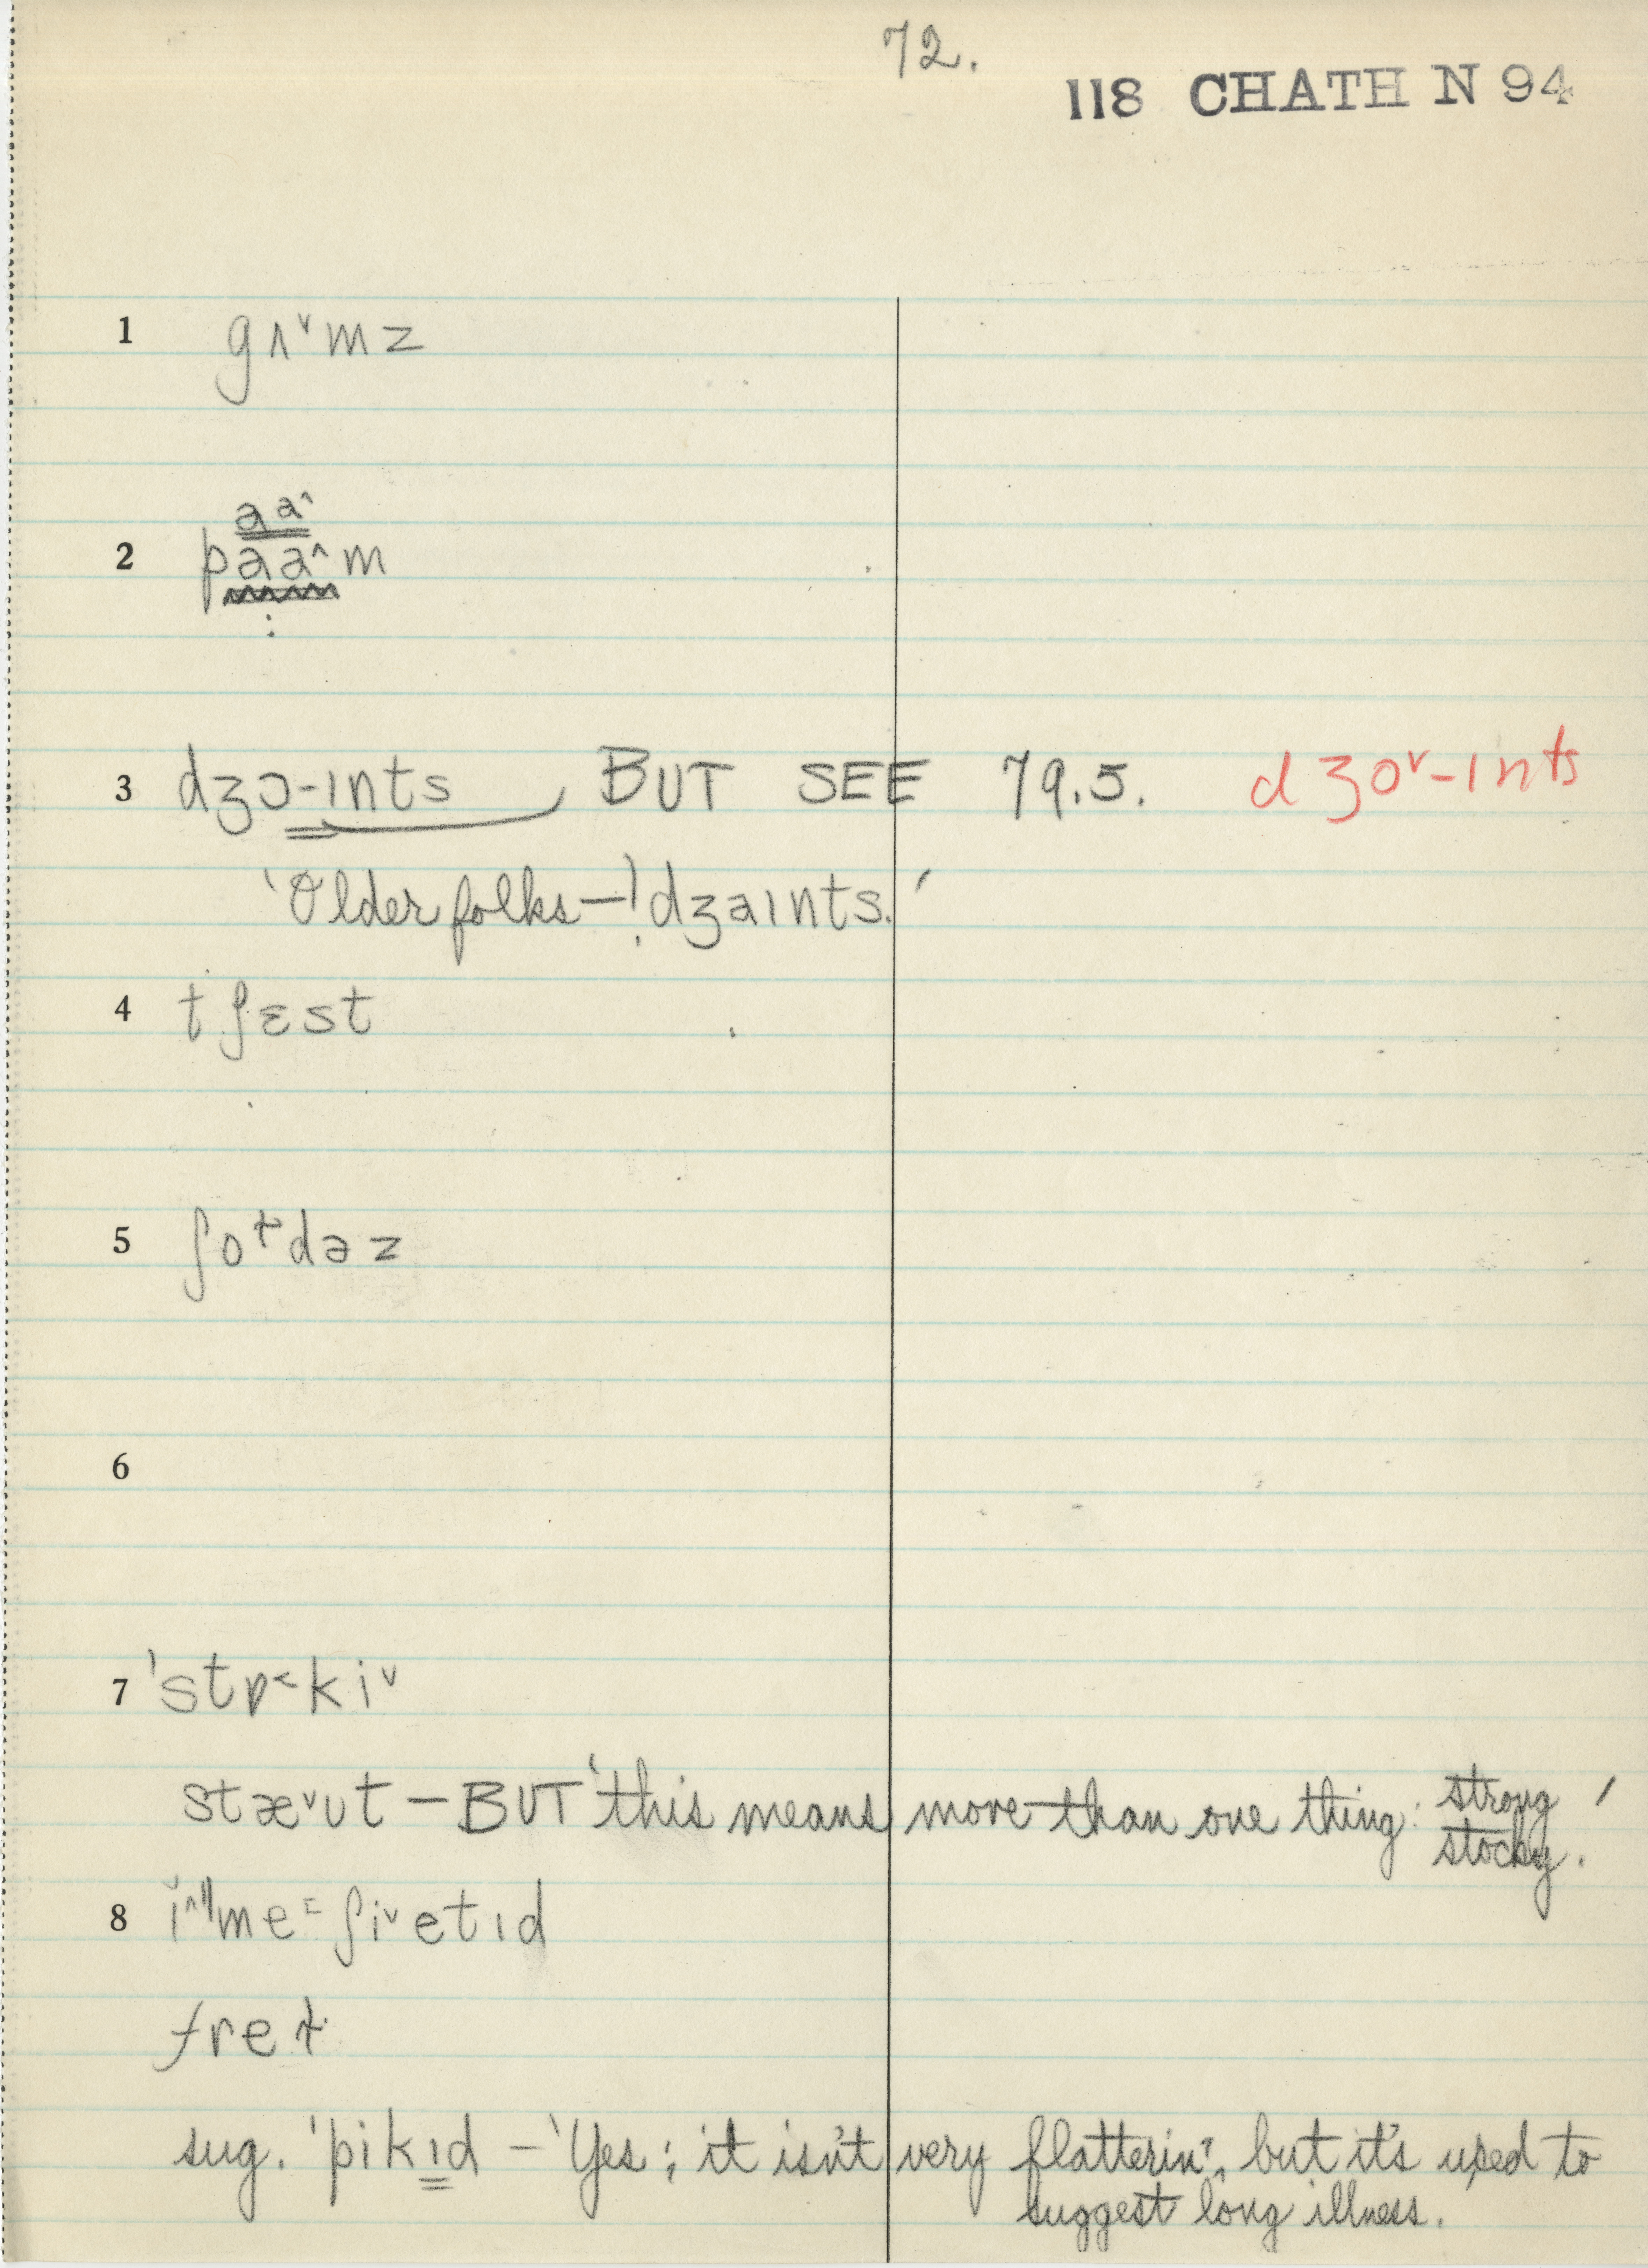 72.
118 CHATH N 94
1 gʌ˅mz
aa^
2 paa^m
3 dʒɔ-ɪnts BUT SEE 79.5. dʒo˅-ɪnts
'Older folks—! dʒaɪnts.'
4 tʃɛst
5 ʃo˔dəz
6
7 'stɒ˂ki˅
stæ˅ʊt — BUT 'this means more than one thing: strong
stocky.'
8 me ʃi˅etɪd
fre
sug. 'pikɪd — 'Yes; it isn't very flatterin', but it's used to
suggest long illness.